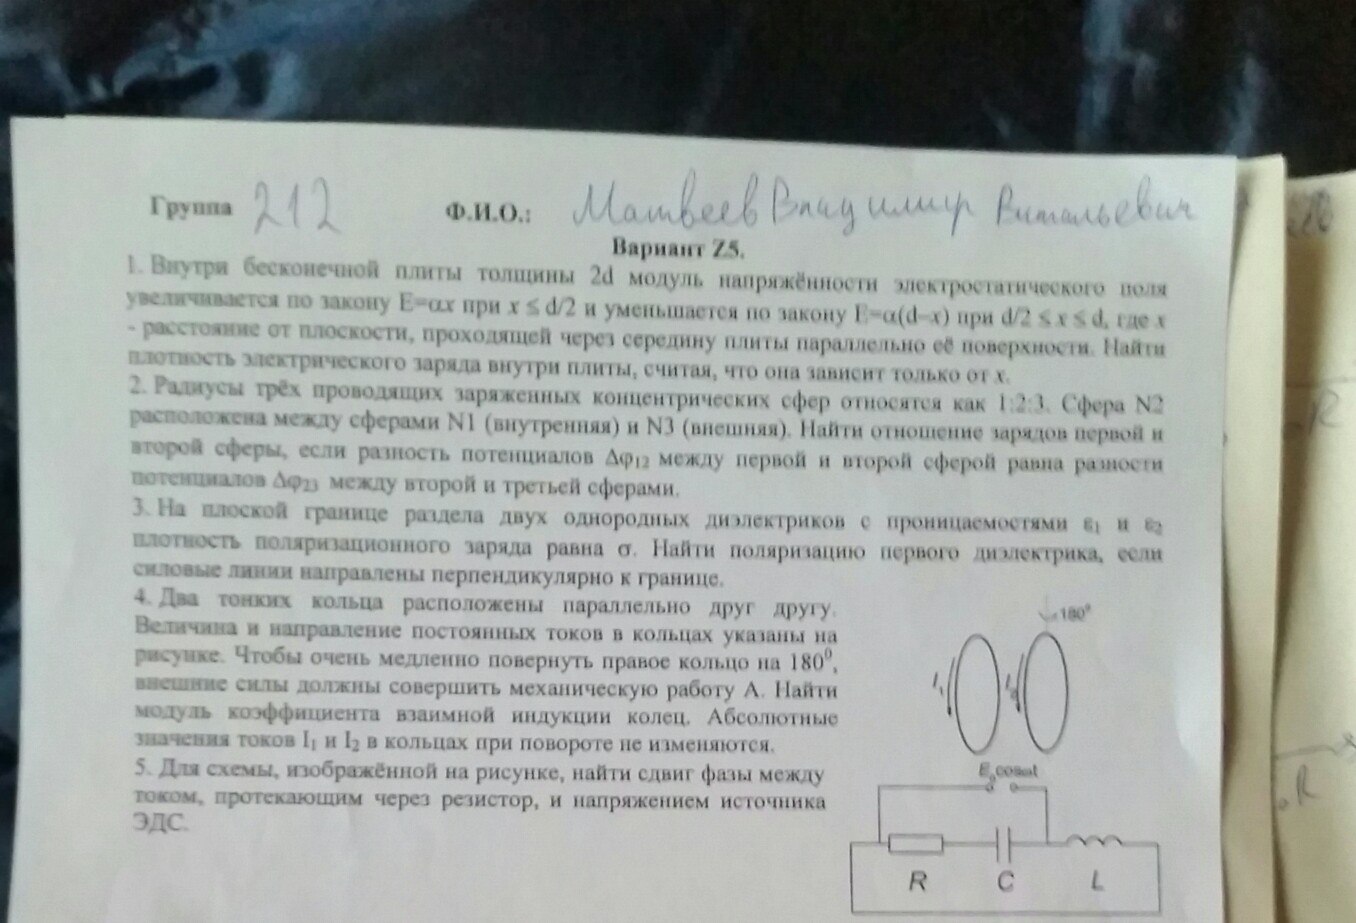 Группа 212 Ф.И.О.: Матвеев Владимир Витальевич
Вариант Z5.
1. Внутри бесконечной плиты толщины 2d модуль напряжённости электростатического поля
увеличивается по закону E=αx при x ≤ d/2 и уменьшается по закону E=α(d–x) при d/2 ≤ x ≤ d, где x
- расстояние от плоскости, проходящей через середину плиты параллельно её поверхности. Найти
плотность электрического заряда внутри плиты, считая, что она зависит только от x.
2. Радиусы трёх проводящих заряженных концентрических сфер относятся как 1:2:3. Сфера N2
расположена между сферами N1 (внутренняя) и N3 (внешняя). Найти отношение зарядов первой и
второй сферы, если разность потенциалов Δφ₁₂ между первой и второй сферой равна разности
потенциалов Δφ₂₃ между второй и третьей сферами.
3. На плоской границе раздела двух однородных диэлектриков с проницаемостями ε₁ и ε₂
плотность поляризационного заряда равна σ. Найти поляризацию первого диэлектрика, если
силовые линии направлены перпендикулярно к границе.
4. Два тонких кольца расположены параллельно друг другу.
Величина и направление постоянных токов в кольцах указаны на
рисунке. Чтобы очень медленно повернуть правое кольцо на 180⁰,
внешние силы должны совершить механическую работу A. Найти
модуль коэффициента взаимной индукции колец. Абсолютные
значения токов I₁ и I₂ в кольцах при повороте не изменяются.
180⁰
I₁ I₂
5. Для схемы, изображённой на рисунке, найти сдвиг фазы между
током, протекающим через резистор, и напряжением источника
ЭДС.
E₀cosωt
R C L
R
R